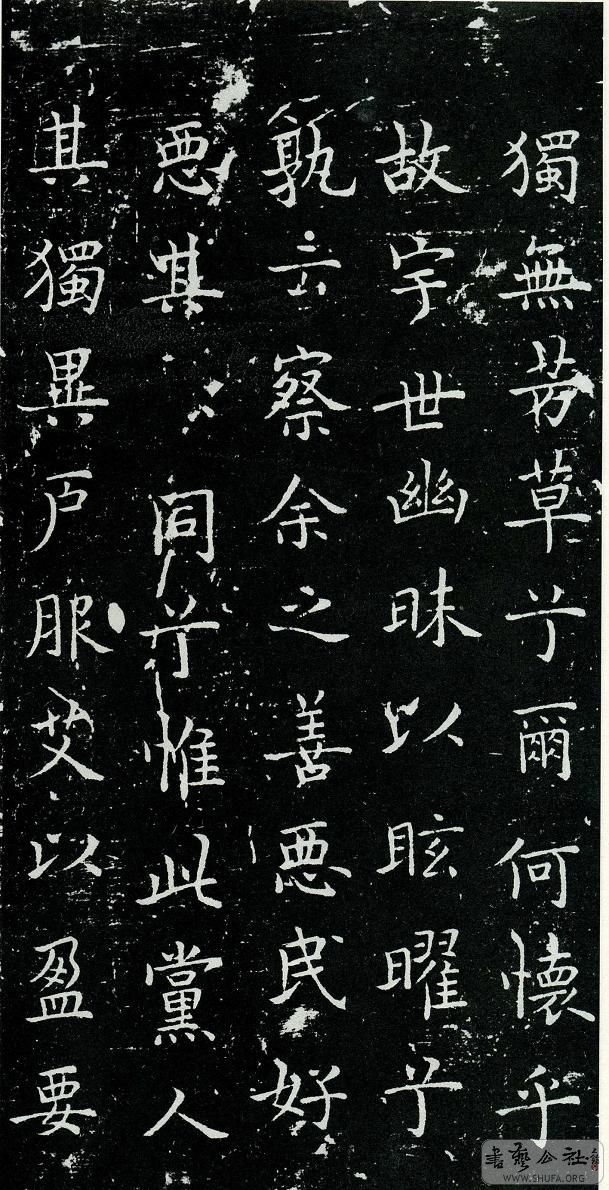 獨無芳草兮爾何懷乎
故宇世幽昧以眩曜兮
孰云察余之善悪民好
悪其同兮惟此黨人
其獨異戶服艾以盈要
書藝公社
WWW.SHUFA.ORG